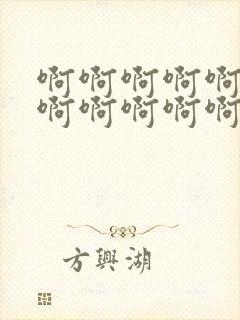 啊啊啊啊啊
啊啊啊啊啊
方興湖